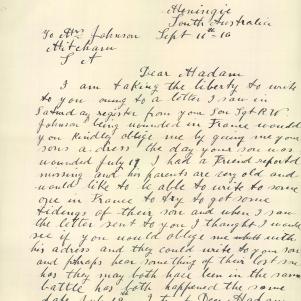 Meningie
South Australia
To Mrs Johnson Sept 16th 16
Mitcham
S A
Dear Madam
I am taking the liberty to write
to you owing to a letter I saw in
Saturday register from your Son Sgt R W
Johnson being wounded in France would
you Kindley oblige me by giving me your
sons adress the day your son was
wounded July 19 I had a Friend reported
missing and his parents are very old and
would like to be able to write to some
one in France to try to got some
tidings of their son and when I saw
the letter sent to you I thought I would
see if you would oblige me with
his adress and they could write to your son
and perhaps hear something of their lost son
has they may both have been in the same
battle has both happened the same
date July 19 I Dear Madam